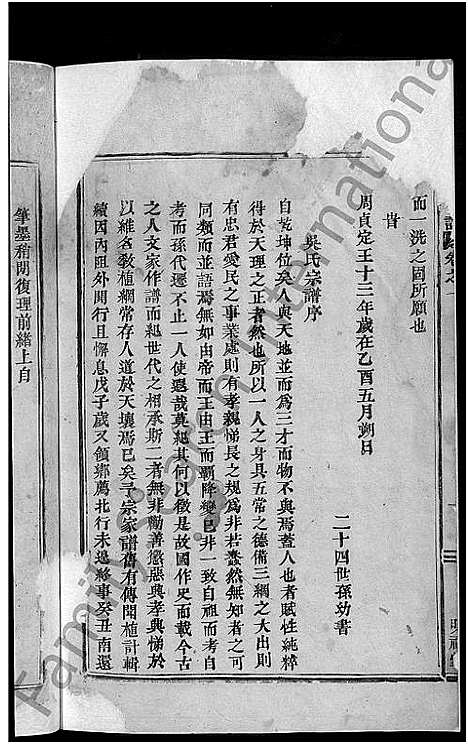 而一洗之固所願也
昔
周貞定王十三年歲在乙酉五月朔日
二十四世孫幼書
吳氏宗譜序
自乾坤位矣人與天地並而爲三才而物不與焉蓋人也者賦性純粹
得於天理之正者然也所以一人之身具五常之德備三綱之大出則
有忠君愛民之事業處則有孝親悌長之規爲非若蠢然無知者之可
同類而並語焉無如由帝而王由王而霸降變已非一致自祖而考自
考而孫代遷不止一人使遇哉莫紀其何以徵是故國作史而載今古
之人文家作譜而紀世代之相承斯二者無非勸善懲惡與孝典悌於
以維名教植綱常存人道於天壤焉已矣予宗家譜舊有傳聞植計輯
續因內阻外閒行且懈息戊子歲又領鄉薦北行未遑終事癸丑南還
筆墨稍閒復理前緒上自
譜 卷之一
Family Search International